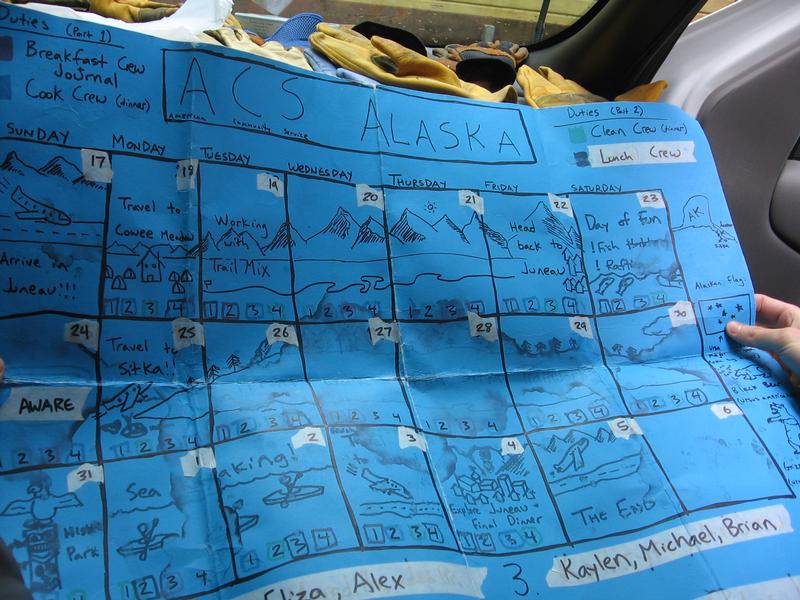 Duties (Part 1)
Breakfast Crew
Journal
Cook Crew (dinner)
ACS
American Community Service
ALASKA
Duties (Part 2)
Clean Crew (dinner)
Lunch Crew
SUNDAY MONDAY TUESDAY WEDNESDAY THURSDAY FRIDAY SATURDAY
17
Arrive in
Juneau!!!
18
Travel to
Cowee Meadow
1 2 3 4
19
Working
with
Trail Mix
1 2 3 4
20
1 2 3 4
21
1 2 3 4
22
Head
back to
Juneau
1 2 3 4
23
Day of Fun
! Fish
! Raft
1 2 3 4
AK
Alaskan Flag
24
AWARE
1 2 3 4
25
Travel to
Sitka!!
1 2 3 4
26
1 2 3 4
27
1 2 3 4
28
1 2 3 4
29
1 2 3 4
30
1 2 3 4
Black Bear
31
Park
1
Sea
1 2 3 4
2
aking!
1 2 3 4
3
1 2 3 4
4
Explore Juneau
Final Dinner
1 2 3 4
5
THE END
6
Eliza, Alex
3. Kaylen, Michael, Brian